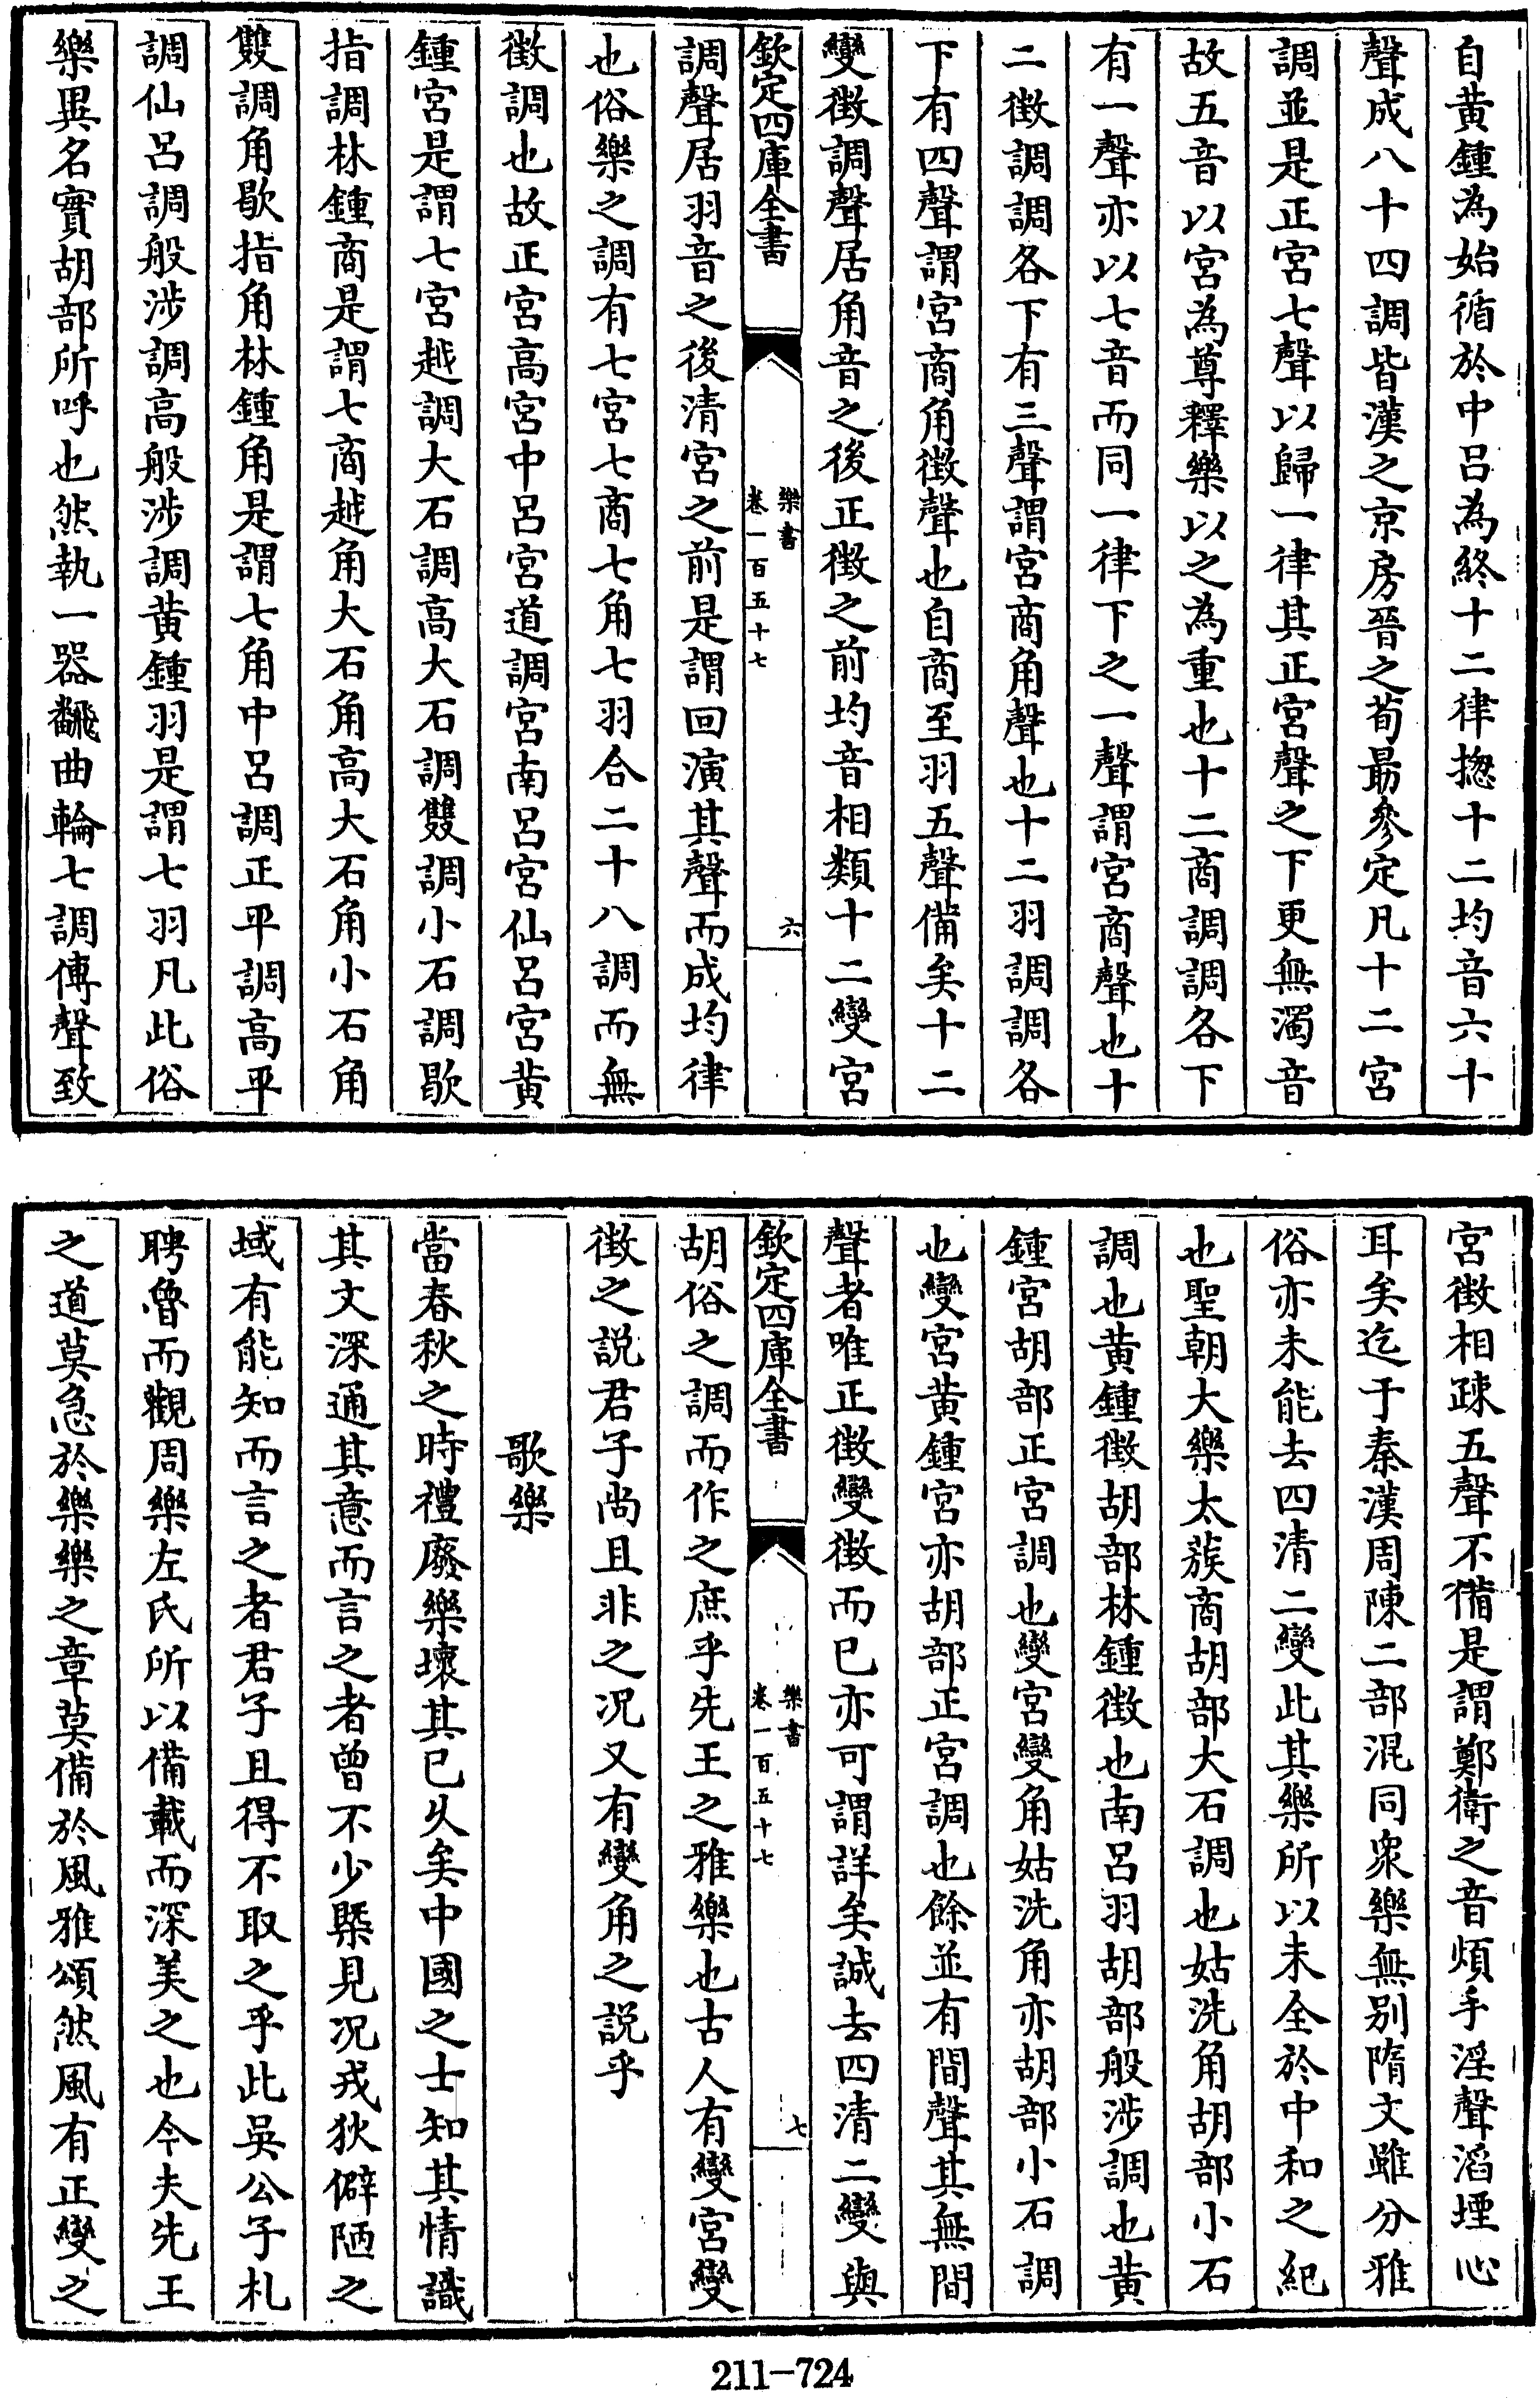 自黃鍾為始循於中呂為終十二律揔十二均音六十
聲成八十四調皆漢之京房晉之荀勗參定凡十二宮
調並是正宮七聲以歸一律其正宮聲之下更無濁音
故五音以宮為尊釋樂以之為重也十二商調調各下
有一聲亦以七音而同一律下之一聲謂宮商聲也十
二徴調調各下有三聲謂宮商角聲也十二羽調調各
下有四聲謂宮商角徴聲也自商至羽五聲備矣十二
變徴調聲居角音之後正徴之前均音相類十二變宮
欽定四庫全書
樂書
卷一百五十七
六
調聲居羽音之後清宮之前是謂回演其聲而成均律
也俗樂之調有七宮七商七角七羽合二十八調而無
徴調也故正宮高宮中呂宮道調宮南呂宮仙呂宮黃
鍾宮是謂七宮越調大石調高大石調雙調小石調歇
指調林鍾商是謂七商越角大石角高大石角小石角
雙調角歇指角林鍾角是謂七角中呂調正平調高平
調仙呂調般涉調高般涉調黃鍾羽是謂七羽凡此俗
樂異名實胡部所呼也然執一器飜曲輪七調傳聲致
宮徴相疎五聲不備是謂鄭衛之音煩手淫聲滔堙心
耳矣迄于秦漢周陳二部混同衆樂無別隋文雖分雅
俗亦未能去四清二變此其樂所以未全於中和之紀
也聖朝大樂太蔟商胡部大石調也姑洗角胡部小石
調也黃鍾徴胡部林鍾徴也南呂羽胡部般涉調也黃
鍾宮胡部正宮調也變宮變角姑洗角亦胡部小石調
也變宮黃鍾宮亦胡部正宮調也餘並有間聲其無間
聲者唯正徴變徴而已亦可謂詳矣誠去四清二變與
欽定四庫全書
樂書
卷一百五十七
七
胡俗之調而作之庶乎先王之雅樂也古人有變宮變
徴之說君子尚且非之况又有變角之說乎
歌樂
當春秋之時禮廢樂壞其已久矣中國之士知其情識
其文深通其意而言之者曾不少槩見况戎狄僻陋之
域有能知而言之者君子且得不取之乎此吳公子札
聘魯而觀周樂左氏所以備載而深美之也今夫先王
之道莫急於樂樂之章莫備於風雅頌然風有正變之
211-724